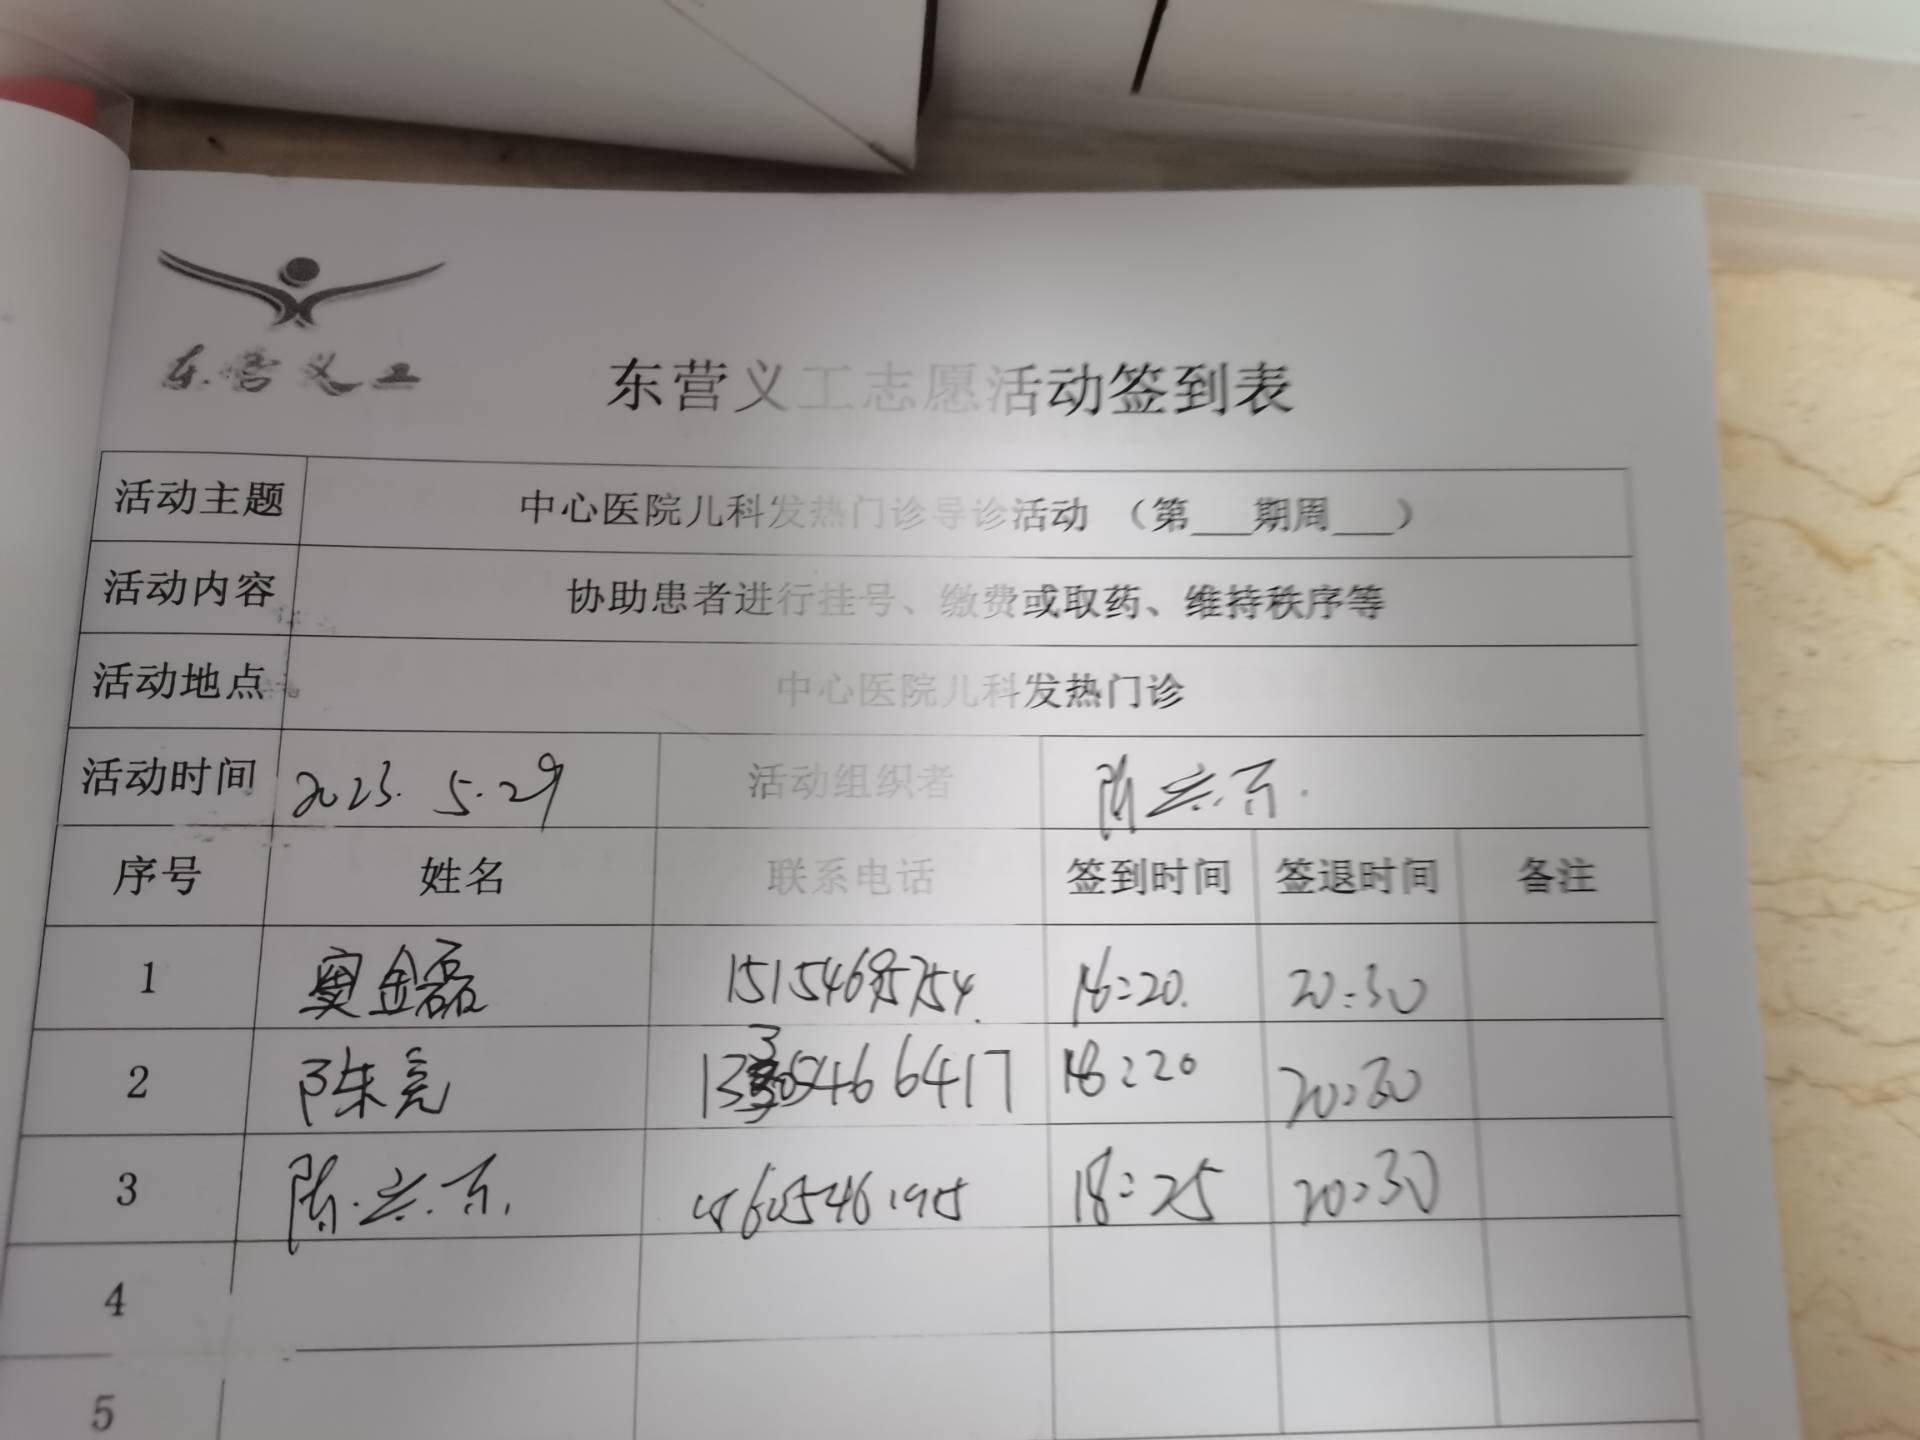 东营义工
东营义工志愿活动签到表
活动主题 中心医院儿科发热门诊导诊活动 （第___期周___）
活动内容 协助患者进行挂号、缴费或取药、维持秩序等
活动地点 中心医院儿科发热门诊
活动时间 2023. 5.29 活动组织者
序号 姓名 联系电话 签到时间 签退时间 备注
1 窦金磊 18:20. 20:30
2 陈亮 18:20 20:30
3 18:25 20:30
4
5